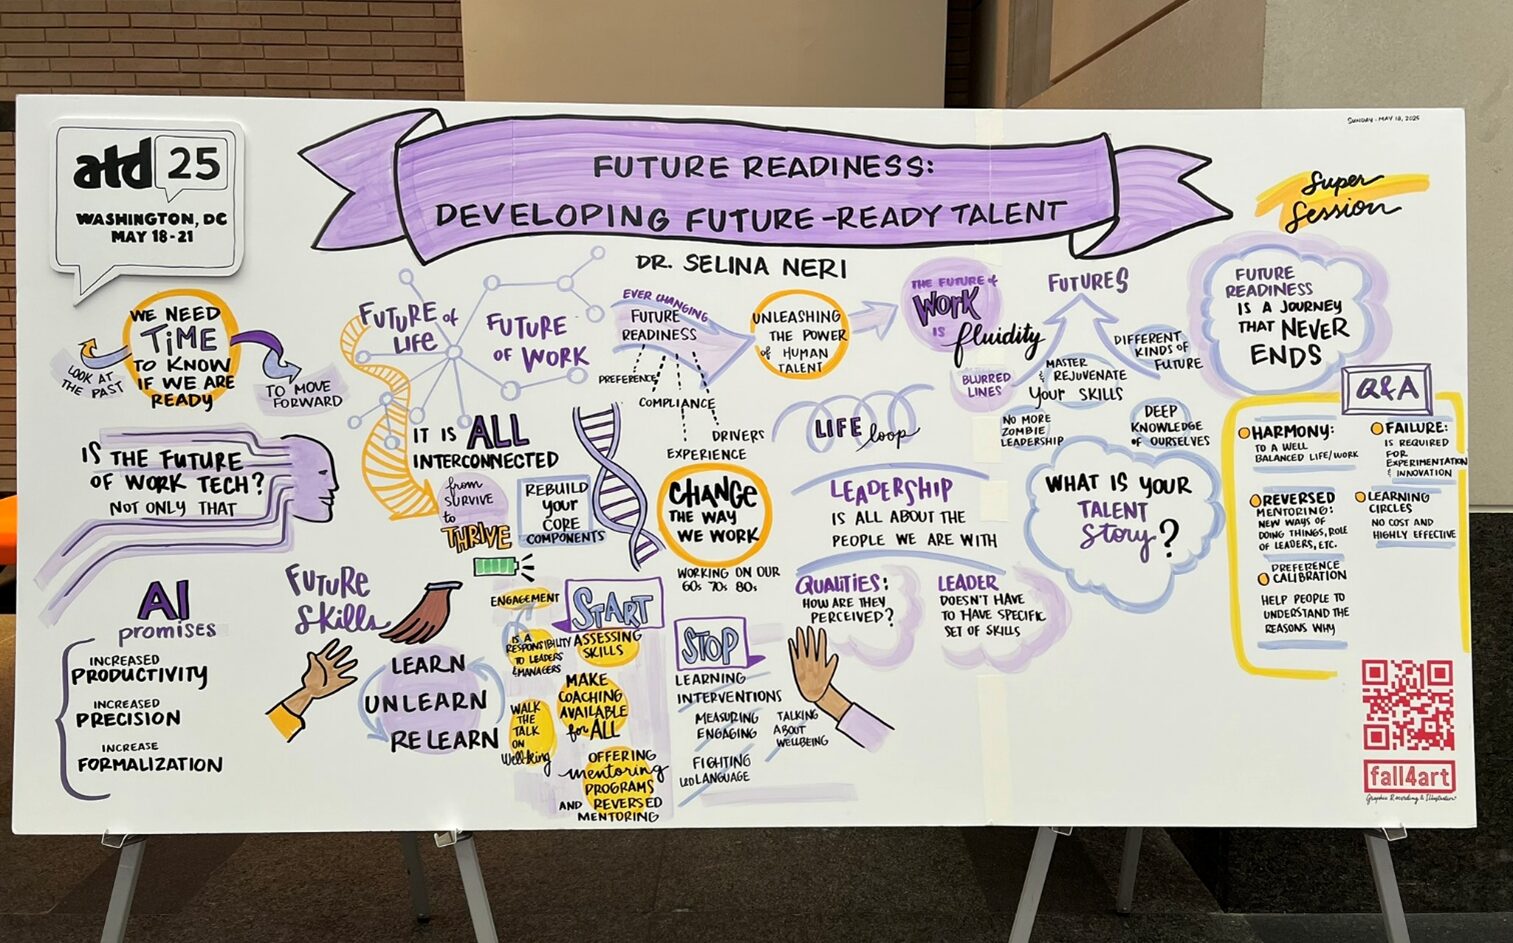 atd 25
WASHINGTON, DC
MAY 18-21
FUTURE READINESS:
DEVELOPING FUTURE-READY TALENT
DR. SELINA NERI
SUNDAY - MAY 18, 2025
Super
Session
WE NEED
TIME
TO KNOW
IF WE ARE
READY
LOOK AT
THE PAST
TO MOVE
FORWARD
FUTURE of
LIFE
FUTURE
OF WORK
IT IS ALL
INTERCONNECTED
from
SURVIVE
to
THRIVE
REBUILD
your
CORE
COMPONENTS
EVER CHANGING
FUTURE
READINESS
PREFERENCE
COMPLIANCE
DRIVERS
EXPERIENCE
UNLEASHING
THE POWER
of HUMAN
TALENT
THE FUTURE of
WORK
IS fluidity
BLURRED
LINES
FUTURES
MASTER
& REJUVENATE
your SKILLS
DIFFERENT
KINDS OF
FUTURE
NO MORE
ZOMBIE
LEADERSHIP
DEEP
KNOWLEDGE
OF OURSELVES
FUTURE
READINESS
IS A JOURNEY
THAT NEVER
ENDS
IS THE FUTURE
OF WORK TECH?
NOT ONLY THAT
CHANGE
THE WAY
WE WORK
WORKING ON OUR
60s 70s 80s
LIFE loop
LEADERSHIP
IS ALL ABOUT THE
PEOPLE WE ARE WITH
QUALITIES:
HOW ARE THEY
PERCEIVED?
LEADER
DOESN'T HAVE
TO HAVE SPECIFIC
SET OF SKILLS
WHAT IS YOUR
TALENT
Story?
AI
promises
INCREASED
PRODUCTIVITY
INCREASED
PRECISION
INCREASE
FORMALIZATION
FUTURE
SKILLS
LEARN
UNLEARN
RELEARN
ENGAGEMENT
IS A
RESPONSIBILITY
TO LEADERS
& MANAGERS
WALK
THE
TALK
ON
Well-being
START
ASSESSING
SKILLS
MAKE
COACHING
AVAILABLE
for ALL
OFFERING
mentoring
PROGRAMS
AND REVERSED
MENTORING
STOP
LEARNING
INTERVENTIONS
MEASURING
ENGAGING
TALKING
ABOUT
WELLBEING
FIGHTING
LANGUAGE
Q&A
HARMONY:
TO A WELL
BALANCED LIFE/WORK
REVERSED
MENTORING:
NEW WAYS OF
DOING THINGS, ROLE
OF LEADERS, ETC.
PREFERENCE
CALIBRATION
HELP PEOPLE TO
UNDERSTAND THE
REASONS WHY
FAILURE:
IS REQUIRED
FOR
EXPERIMENTATION
& INNOVATION
LEARNING
CIRCLES
NO COST AND
HIGHLY EFFECTIVE
fall4art
Graphic Recording & Illustration